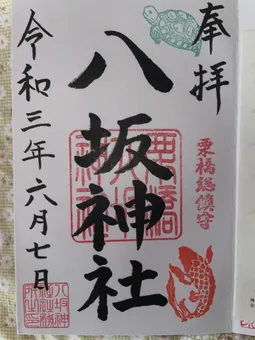 奉拝
栗橋総鎮守
八坂神社
令和三年六月七日